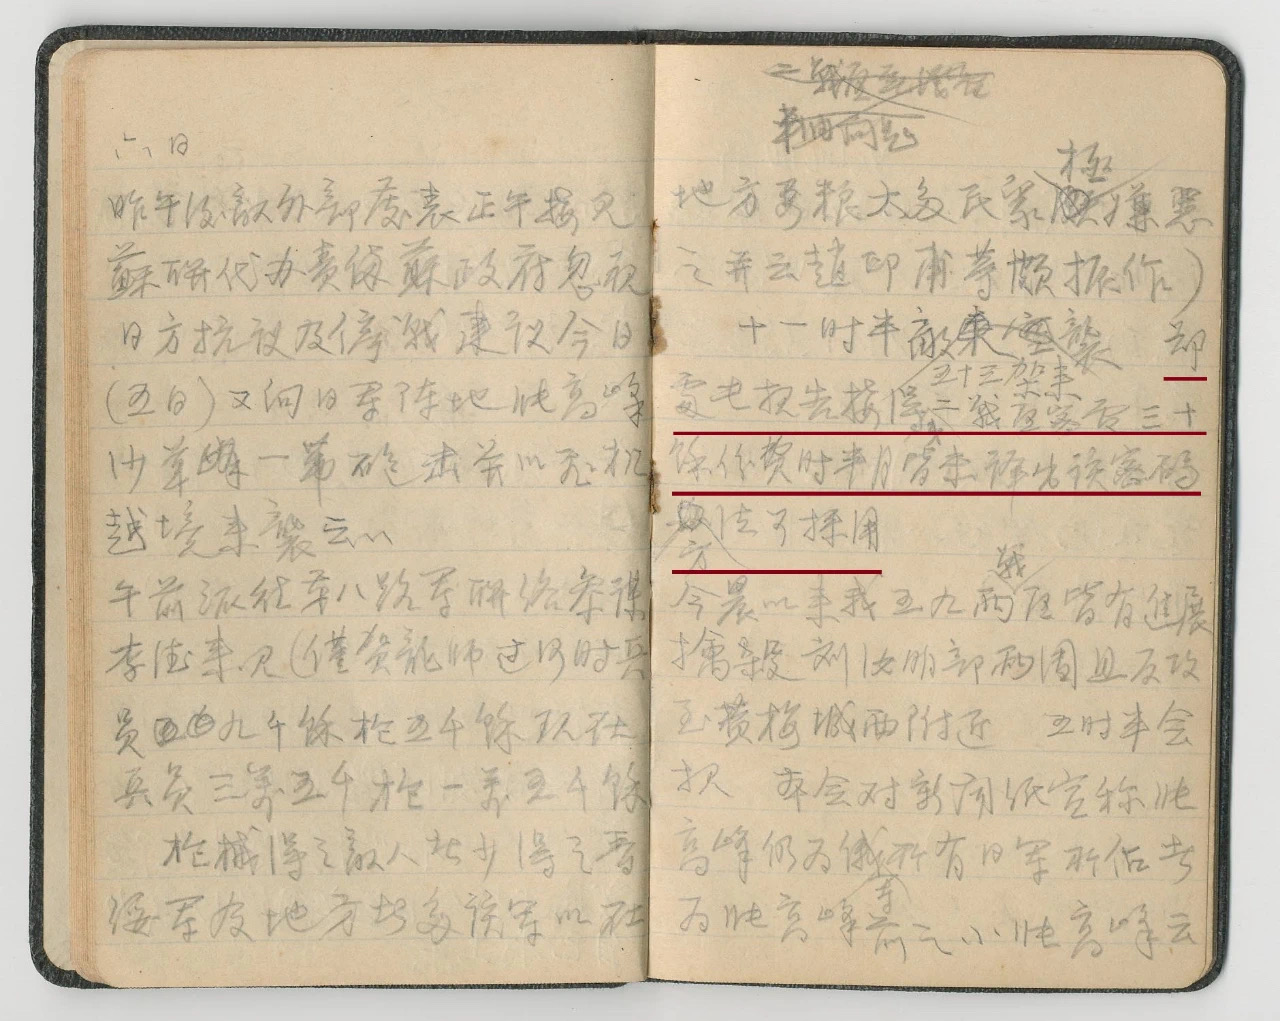 六日
昨午后敌外部发表正午接见
蘇联代办责备蘇政府忽视
日方抗议及停战建议今日
(五日)又向日军阵地张高峰
沙草峰一带砲击并以飞机
越境来襲云以
午前派往第八路军联络参谋
李德来见(僅贺龍师过河时兵
员九千餘枪五千餘现在
兵员三萬五千枪一萬五千餘
枪械得之敌人者少得之晋
绥军及地方者多该军以在
二戰区
地方要粮太多民眾極嫌惡
之并云趙印甫等頗振作)
十一时半敵來空襲 郑
五十三架来
震电报告接得我二戰区密电三十
餘份费时半月皆未译出该密码
方法可採用
今晨以来我五九兩戰区皆有進展
擒殺 刘汝明部兩团且反攻
至黄梅城西附近 五时半会
报 本会对新闻纸宣称张
高峰仍为俄所有日军所佔者
为张高峰前之小张高峰云